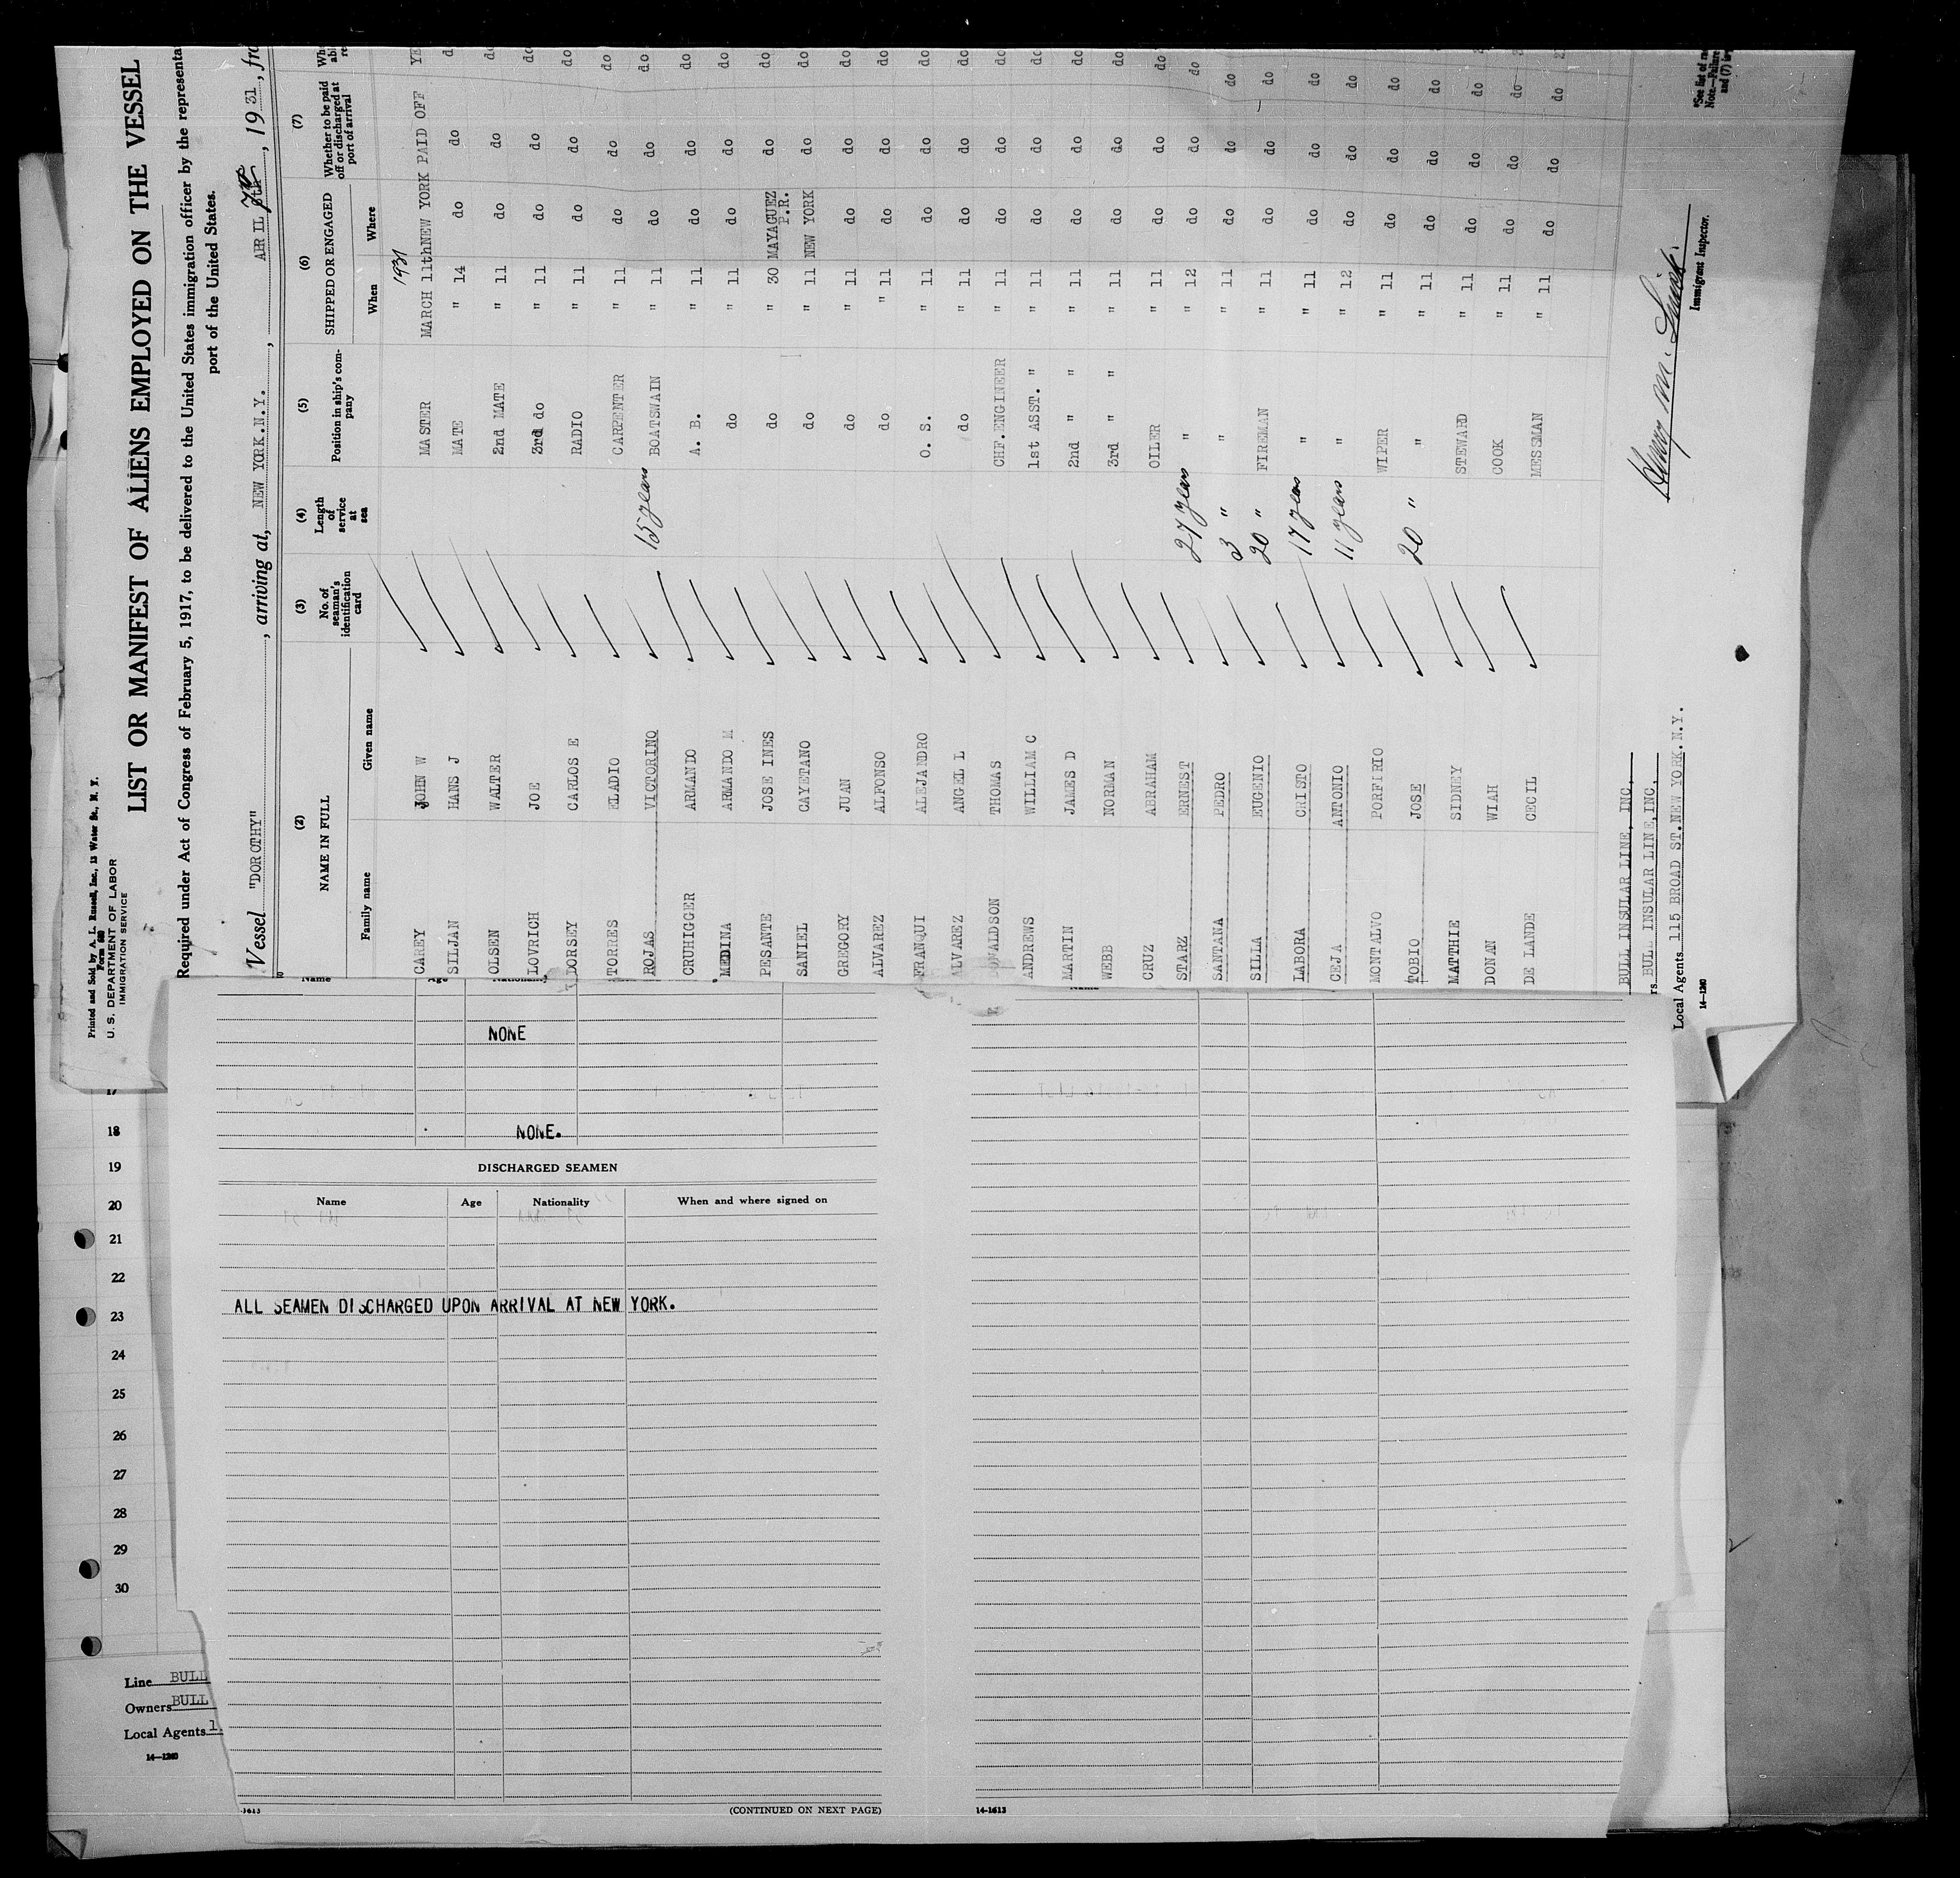 Printed and Sold by A. L. Russell, Inc., 13 Water St., N. Y.
Form 680
U. S. DEPARTMENT OF LABOR
IMMIGRATION SERVICE
LIST OR MANIFEST OF ALIENS EMPLOYED ON THE VESSEL
Required under Act of Congress of February 5, 1917, to be delivered to the United States immigration officer by the representa
port of the United States.
Vessel "DOROTHY", arriving at, NEW YORK.N.Y., APRIL 7th, 1931, fro
(2) (3) (4) (5) (6) (7)
NAME IN FULL No. of seaman's identification card Length of service at sea Position in ship's company SHIPPED OR ENGAGED Whether to be paid off or discharged at port of arrival
Family name Given name When Where
1931
CAREY JOHN W MASTER MARCH 11th NEW YORK PAID OFF YE
SILJAN HANS J MATE " 14 do do d
OLSEN WALTER 2nd MATE " 11 do do do
LOVRICH JOE 3rd do " 11 do do do
DORSEY CARLOS E RADIO " 11 do do do
TORRES ELADIO CARPENTER " 11 do do do
ROJAS VICTORINO 15 years BOATSWAIN " 11 do do do
CRUHIGGER ARMANDO A. B. " 11 do do do
MEDINA ARMANDO M do " 11 do do do
PESANTE JOSE INES do " 30 MAYAGUEZ P.R. do do
SANIEL CAYETANO do " 11 NEW YORK do do
GREGORY JUAN do " 11 do do do
ALVAREZ ALFONSO do " 11 do do do
FRANQUI ALEJANDRO O. S. " 11 do do do
ALVAREZ ANGEL L do " 11 do do do
DONALDSON THOMAS CHF.ENGINEER " 11 do do do
ANDREWS WILLIAM C 1st ASST. " " 11 do do do
MARTIN JAMES D 2nd " " " 11 do do do
WEBB NORMAN 3rd " " " 11 do do do
CRUZ ABRAHAM OILER " 11 do do do
STARZ ERNEST 27 years " " 12 do do do
SANTANA PEDRO 3 " " " 11 do do do
SILLA EUGENIO 20 " FIREMAN " 11 do do do
LABORA CRISTO 17 years " " 11 do do do
CEJA ANTONIO 11 years " " 12 do do do
MONTALVO PORFIRIO WIPER " 11 do do do
TOBIO JOSE 20 " " " 11 do do do
MATTHIE SIDNEY STEWARD " 11 do do do
DONAN WIAH COOK " 11 do do do
DE LANDE CECIL MESSMAN " 11 do do do
BULL INSULAR LINE, INC,
rs BULL INSULAR LINE,INC,
Local Agents 115 BROAD ST.NEW YORK.N.Y.
14-1240
Immigrant Inspector.
*See list of ra
Note.—Failure
and (7) is
Name Age Nationality
NONE
NONE.
DISCHARGED SEAMEN
Name Age Nationality When and where signed on
ALL SEAMEN DISCHARGED UPON ARRIVAL AT NEW YORK.
(CONTINUED ON NEXT PAGE)
14-1613
17
18
19
20
21
22
23
24
25
26
27
28
29
30
Line BULL
Owners BULL
Local Agents 1
14-1240